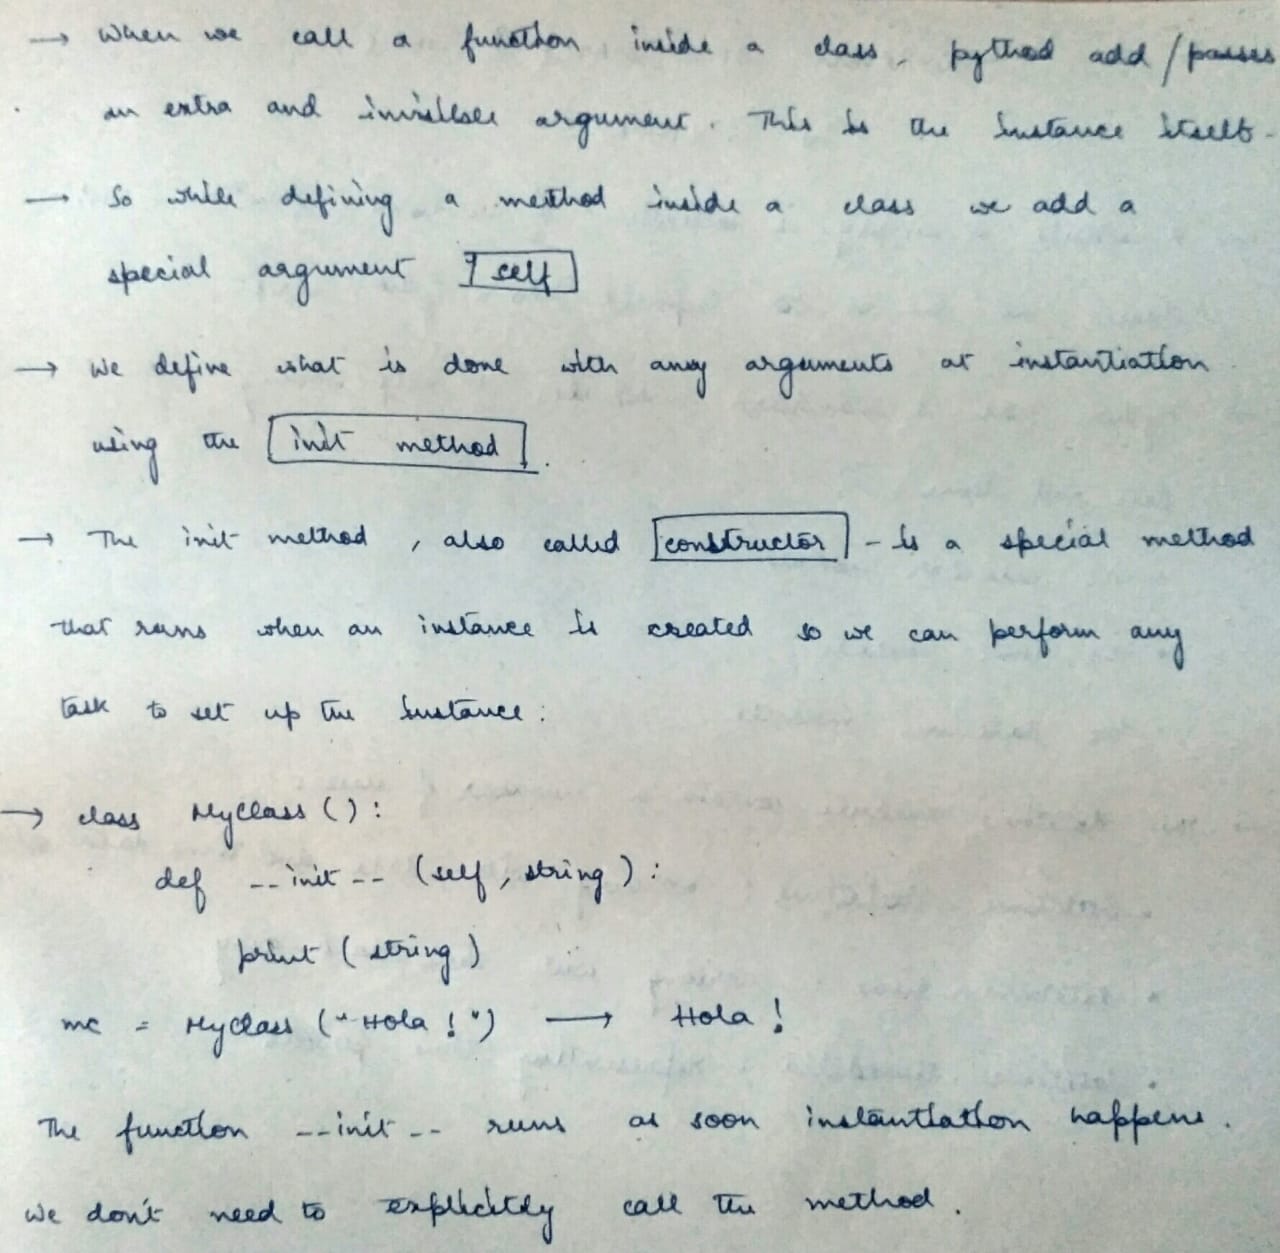 → When we call a function inside a class, pythod add / passes
an extra and invisible argument. This is the instance itself.
→ So while defining a method inside a class we add a
special argument self
→ We define what is done with any arguments at instantiation
using the init method.
→ The init method, also called constructor - is a special method
that runs when an instance is created so we can perform any
task to set up the instance:
→ class MyClass ():
def __init__ (self, string):
print (string)
mc = MyClass ("Hola!") → Hola!
The function __init__ runs as soon instantiation happens.
We don't need to explicitly call the method.